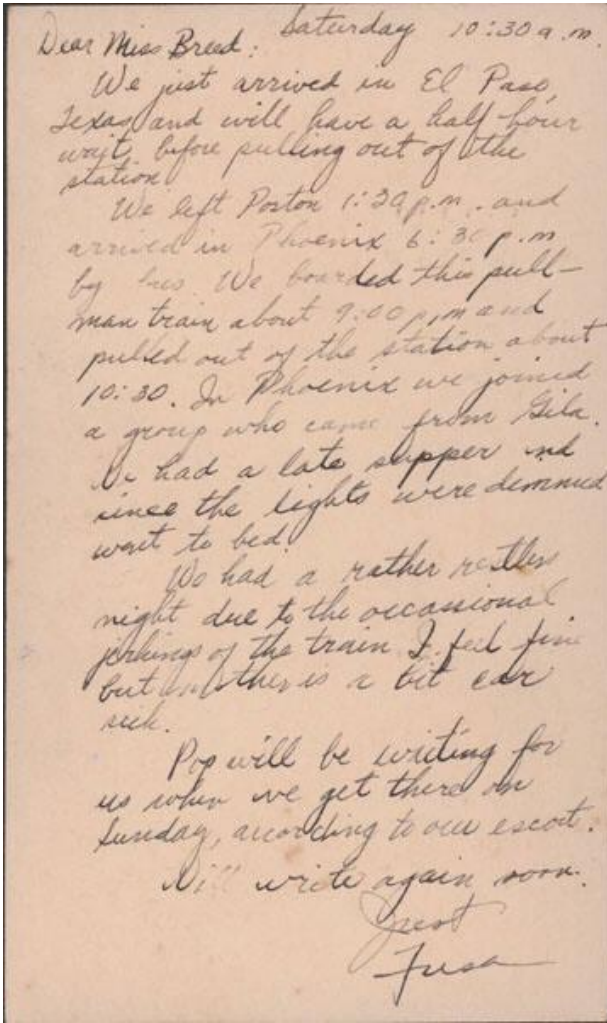 Saturday 10:30 a.m.
Dear Miss Breed:
We just arrived in El Paso,
Texas and will have a half hour
wait before pulling out of the
station.
We left Poston 1:30 p.m. and
arrived in Phoenix 6:30 p.m
by bus. We boarded this pull-
man train about 9:00 p.m and
pulled out of the station about
10:30. In Phoenix we joined
a group who came from Gila.
We had a late supper and
since the lights were dimmed
went to bed.
We had a rather restless
night due to the occassional
jerkings of the train. I feel fine
but mother is a bit car
sick.
Pop will be writing for
us when we get there on
Sunday, according to our escort.
Will write again soon.
Just
Fusa